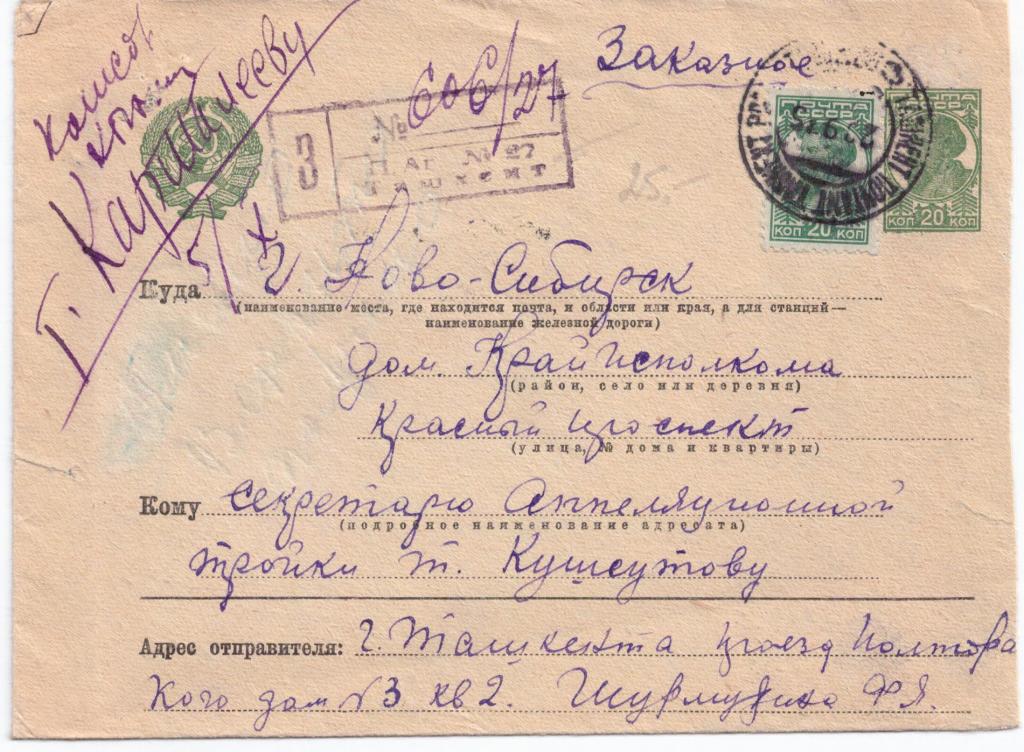 Заказное
№ 606/27
З
П. Аг. № 27
Ташкент
Г. Каримжееву
25.-
ПОЧТА СССР
20
КОП 20 КОП
КОП 20 КОП
TASHKENT POSTAMT
Куда г. Ново-Сибирск
(наименование места, где находится почта, и области или края, а для станций—
наименование железной дороги)
дом. Крайисполкома
(район, село или деревня)
Красный проспект
(улица, № дома и квартиры)
Кому Секретарю Аппеляционной
(подробное наименование адресата)
тройки т. Кушеутову
Адрес отправителя: г. Ташкента проезд Полтора
Кого дом №3 кв 2. Шурмудина Ф.Я.